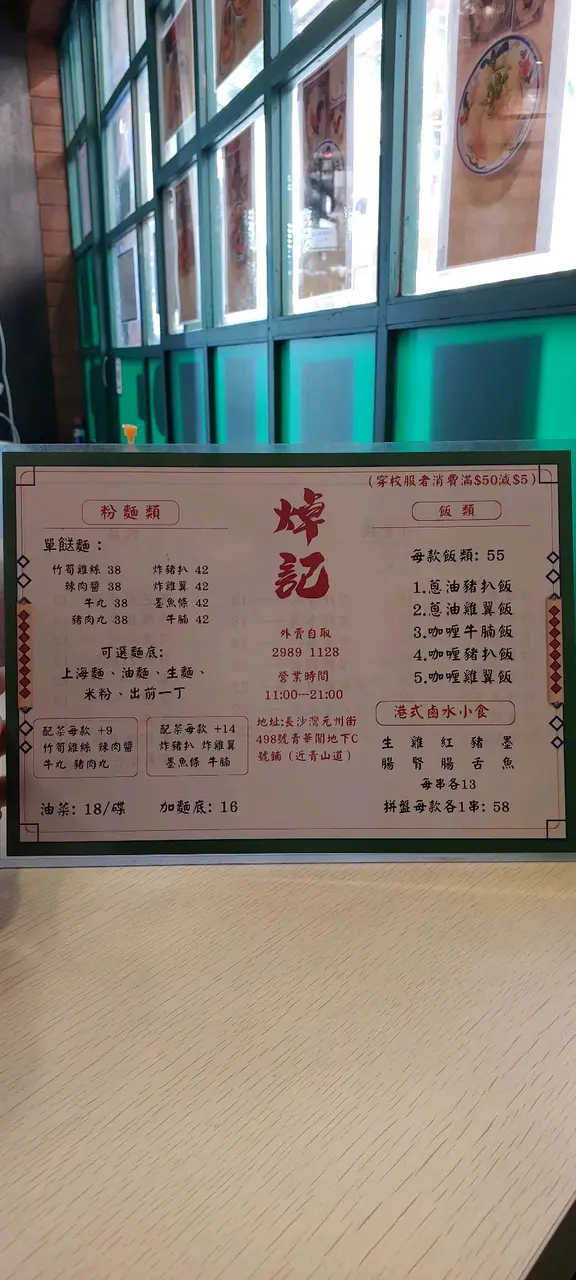 (穿校服者消費滿$50減$5)
粉麵類
單餸麵：
竹筍雞絲 38 炸豬扒 42
辣肉醬 38 炸雞翼 42
牛丸 38 墨魚條 42
豬肉丸 38 牛腩 42
可選麵底：
上海麵、油麵、生麵、
米粉、出前一丁
配菜每款 +9
竹筍雞絲 辣肉醬
牛丸 豬肉丸
配菜每款 +14
炸豬扒 炸雞翼
墨魚條 牛腩
油菜: 18/碟 加麵底: 16
焯記
外賣自取
2989 1128
營業時間
11:00---21:00
地址:長沙灣元州街
498號青華閣地下C
號鋪（近青山道）
飯類
每款飯類: 55
1.蔥油豬扒飯
2.蔥油雞翼飯
3.咖喱牛腩飯
4.咖喱豬扒飯
5.咖喱雞翼飯
港式鹵水小食
生 雞 紅 豬 墨
腸 腎 腸 舌 魚
每串各13
拼盤每款各1串: 58